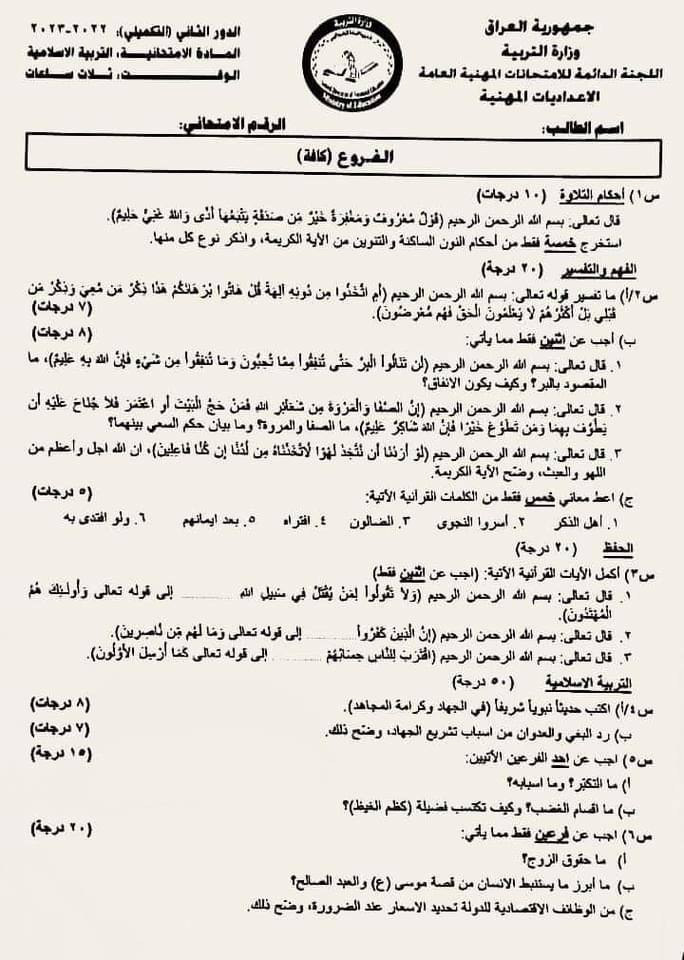 جمهورية العراق
وزارة التربية
اللجنة الدائمة للامتحانات المهنية العامة
الاعداديات المهنية
وزارة التربية
Ministry of Education
الدور الثاني (التكميلي): ٢٠٢٢-٢٠٢٣
المادة الامتحانية: التربية الاسلامية
الوقت: ثلاث ساعات
اسم الطالب:
الرقم الامتحاني:
الفروع (كافة)
س١) أحكام التلاوة (١٠ درجات)
قال تعالى: بسم الله الرحمن الرحيم (قَوْلٌ مَّعْرُوفٌ وَمَغْفِرَةٌ خَيْرٌ مِّن صَدَقَةٍ يَتْبَعُهَا أَذًى وَاللهُ غَنِيٌّ حَلِيمٌ).
استخرج خمسة فقط من أحكام النون الساكنة والتنوين من الآية الكريمة، واذكر نوع كل منها.
الفهم والتفسير (٢٠ درجة)
س٢/أ) ما تفسير قوله تعالى: بسم الله الرحمن الرحيم (أَمِ اتَّخَذُوا مِن دُونِهِ آلِهَةً قُلْ هَاتُوا بُرْهَانَكُمْ هَذَا ذِكْرُ مَن مَّعِيَ وَذِكْرُ مَن
قَبْلِي بَلْ أَكْثَرُهُمْ لَا يَعْلَمُونَ الْحَقَّ فَهُم مُّعْرِضُونَ). (٧ درجات)
ب) أجب عن إثنين فقط مما يأتي: (٨ درجات)
١. قال تعالى: بسم الله الرحمن الرحيم (لَن تَنَالُواْ الْبِرَّ حَتَّى تُنفِقُواْ مِمَّا تُحِبُّونَ وَمَا تُنفِقُواْ مِن شَيْءٍ فَإِنَّ اللهَ بِهِ عَلِيمٌ)، ما
المقصود بالبر؟ وكيف يكون الانفاق؟
٢. قال تعالى: بسم الله الرحمن الرحيم (إِنَّ الصَّفَا وَالْمَرْوَةَ مِن شَعَائِرِ اللهِ فَمَنْ حَجَّ الْبَيْتَ أَوِ اعْتَمَرَ فَلَا جُنَاحَ عَلَيْهِ أَن
يَطَّوَّفَ بِهِمَا وَمَن تَطَوَّعَ خَيْرًا فَإِنَّ اللهَ شَاكِرٌ عَلِيمٌ)، ما الصفا والمروة؟ وما بيان حكم السعي بينهما؟
٣. قال تعالى: بسم الله الرحمن الرحيم (لَوْ أَرَدْنَا أَن نَّتَّخِذَ لَهْوًا لَّاتَّخَذْنَاهُ مِن لَّدُنَّا إِن كُنَّا فَاعِلِينَ)، ان الله اجل وأعظم من
اللهو والعبث، وضح الآية الكريمة.
ج) اعط معاني خمس فقط من الكلمات القرآنية الآتية: (٥ درجات)
١. أهل الذكر ٢. أسروا النجوى ٣. الضالون ٤. افتراه ٥. بعد ايمانهم ٦. ولو افتدى به
الحفظ (٢٠ درجة)
س٣) أكمل الآيات القرآنية الآتية: (اجب عن إثنين فقط)
١. قال تعالى: بسم الله الرحمن الرحيم (وَلَا تَقُولُواْ لِمَنْ يُقْتَلُ فِي سَبِيلِ اللهِ ............ إلى قوله تعالى وَأُولَئِكَ هُمُ
الْمُهْتَدُونَ).
٢. قال تعالى: بسم الله الرحمن الرحيم (إِنَّ الَّذِينَ كَفَرُواْ ............ إلى قوله تعالى وَمَا لَهُم مِّن نَّاصِرِينَ).
٣. قال تعالى: بسم الله الرحمن الرحيم (اقْتَرَبَ لِلنَّاسِ حِسَابُهُمْ ............ إلى قوله تعالى كَمَا أُرْسِلَ الْأَوَّلُونَ).
التربية الاسلامية (٥٠ درجة)
س٤/أ) اكتب حديثاً نبوياً شريفاً (في الجهاد وكرامة المجاهد). (٨ درجات)
ب) رد البغي والعدوان من اسباب تشريع الجهاد، وضح ذلك. (٧ درجات)
س٥) اجب عن احد الفرعين الآتيين: (١٥ درجة)
أ) ما التكبّر؟ وما اسبابه؟
ب) ما اقسام الغضب؟ وكيف تكتسب فضيلة (كظم الغيظ)؟
س٦) اجب عن فرعين فقط مما يأتي: (٢٠ درجة)
أ) ما حقوق الزوج؟
ب) ما أبرز ما يستنبط الانسان من قصة موسى (ع) والعبد الصالح؟
ج) من الوظائف الاقتصادية للدولة تحديد الاسعار عند الضرورة، وضح ذلك.